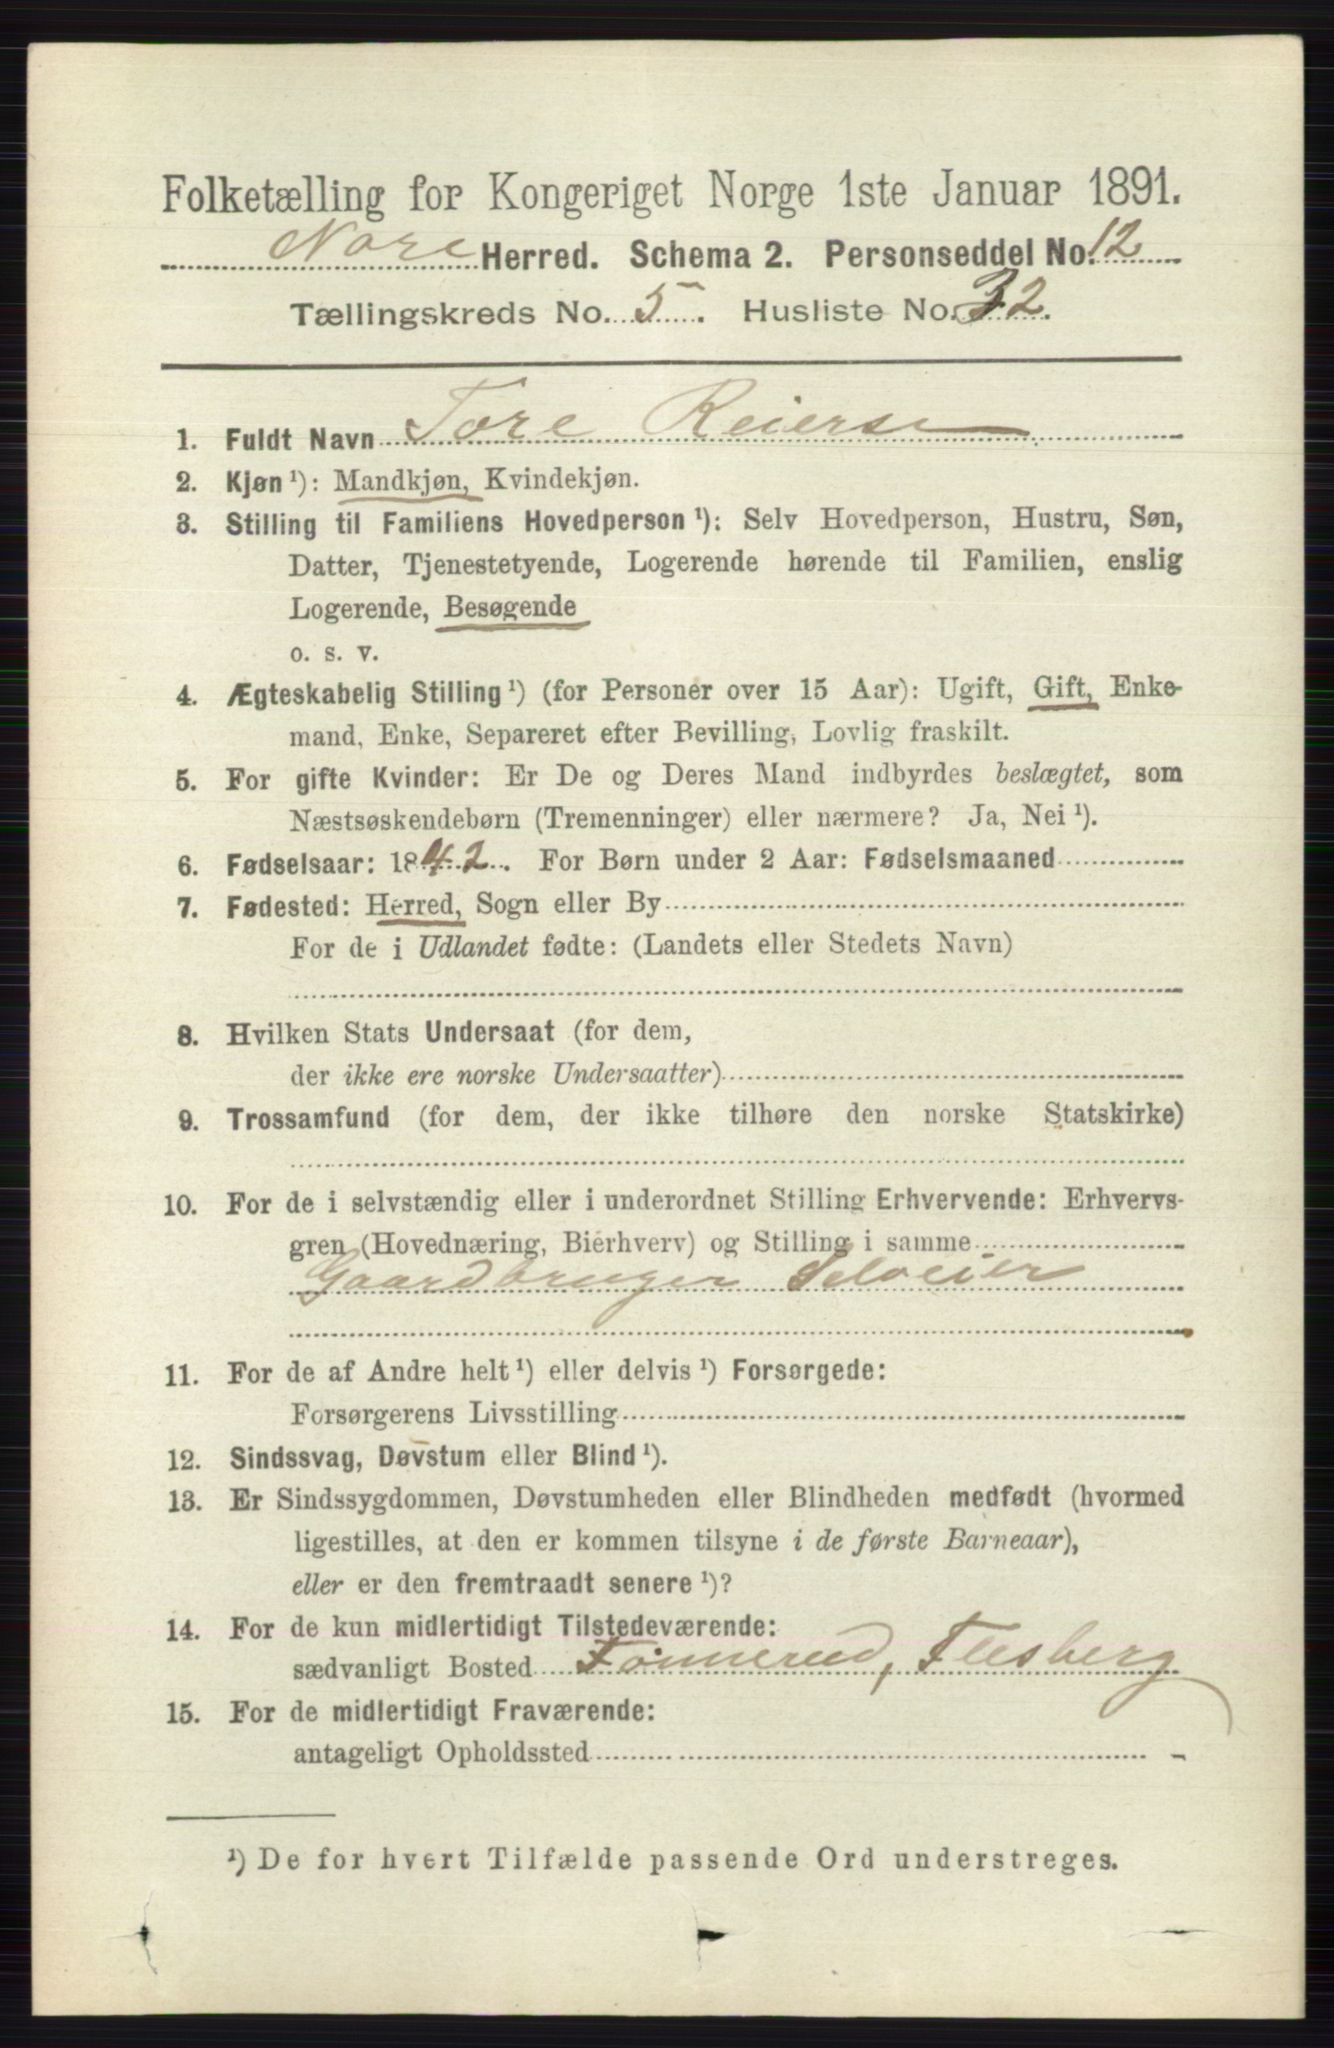 Folketælling for Kongeriget Norge 1ste Januar 1891.
Nore Herred. Schema 2. Personseddel No. 12
Tællingskreds No. 5. Husliste No. 32.
1. Fuldt Navn Tore Reiersen
2. Kjøn ¹): Mandkjøn, Kvindekjøn.
3. Stilling til Familiens Hovedperson ¹): Selv Hovedperson, Hustru, Søn,
Datter, Tjenestetyende, Logerende hørende til Familien, enslig
Logerende, Besøgende
o. s. v.
4. Ægteskabelig Stilling ¹) (for Personer over 15 Aar): Ugift, Gift, Enke-
mand, Enke, Separeret efter Bevilling, Lovlig fraskilt.
5. For gifte Kvinder: Er De og Deres Mand indbyrdes beslægtet, som
Næstsøskendebørn (Tremenninger) eller nærmere? Ja, Nei ¹).
6. Fødselsaar: 1842. For Børn under 2 Aar: Fødselsmaaned
7. Fødested: Herred, Sogn eller By
For de i Udlandet fødte: (Landets eller Stedets Navn)
8. Hvilken Stats Undersaat (for dem,
der ikke ere norske Undersaatter)
9. Trossamfund (for dem, der ikke tilhøre den norske Statskirke)
10. For de i selvstændig eller i underordnet Stilling Erhvervende: Erhvervs-
gren (Hovednæring, Bierhverv) og Stilling i samme
Gaardbruger Selveier
11. For de af Andre helt ¹) eller delvis ¹) Forsørgede:
Forsørgerens Livsstilling
12. Sindssvag, Døvstum eller Blind ¹).
13. Er Sindssygdommen, Døvstumheden eller Blindheden medfødt (hvormed
ligestilles, at den er kommen tilsyne i de første Barneaar),
eller er den fremtraadt senere ¹)?
14. For de kun midlertidigt Tilstedeværende:
sædvanligt Bosted Fønnerud, Flesberg
15. For de midlertidigt Fraværende:
antageligt Opholdssted
¹) De for hvert Tilfælde passende Ord understreges.